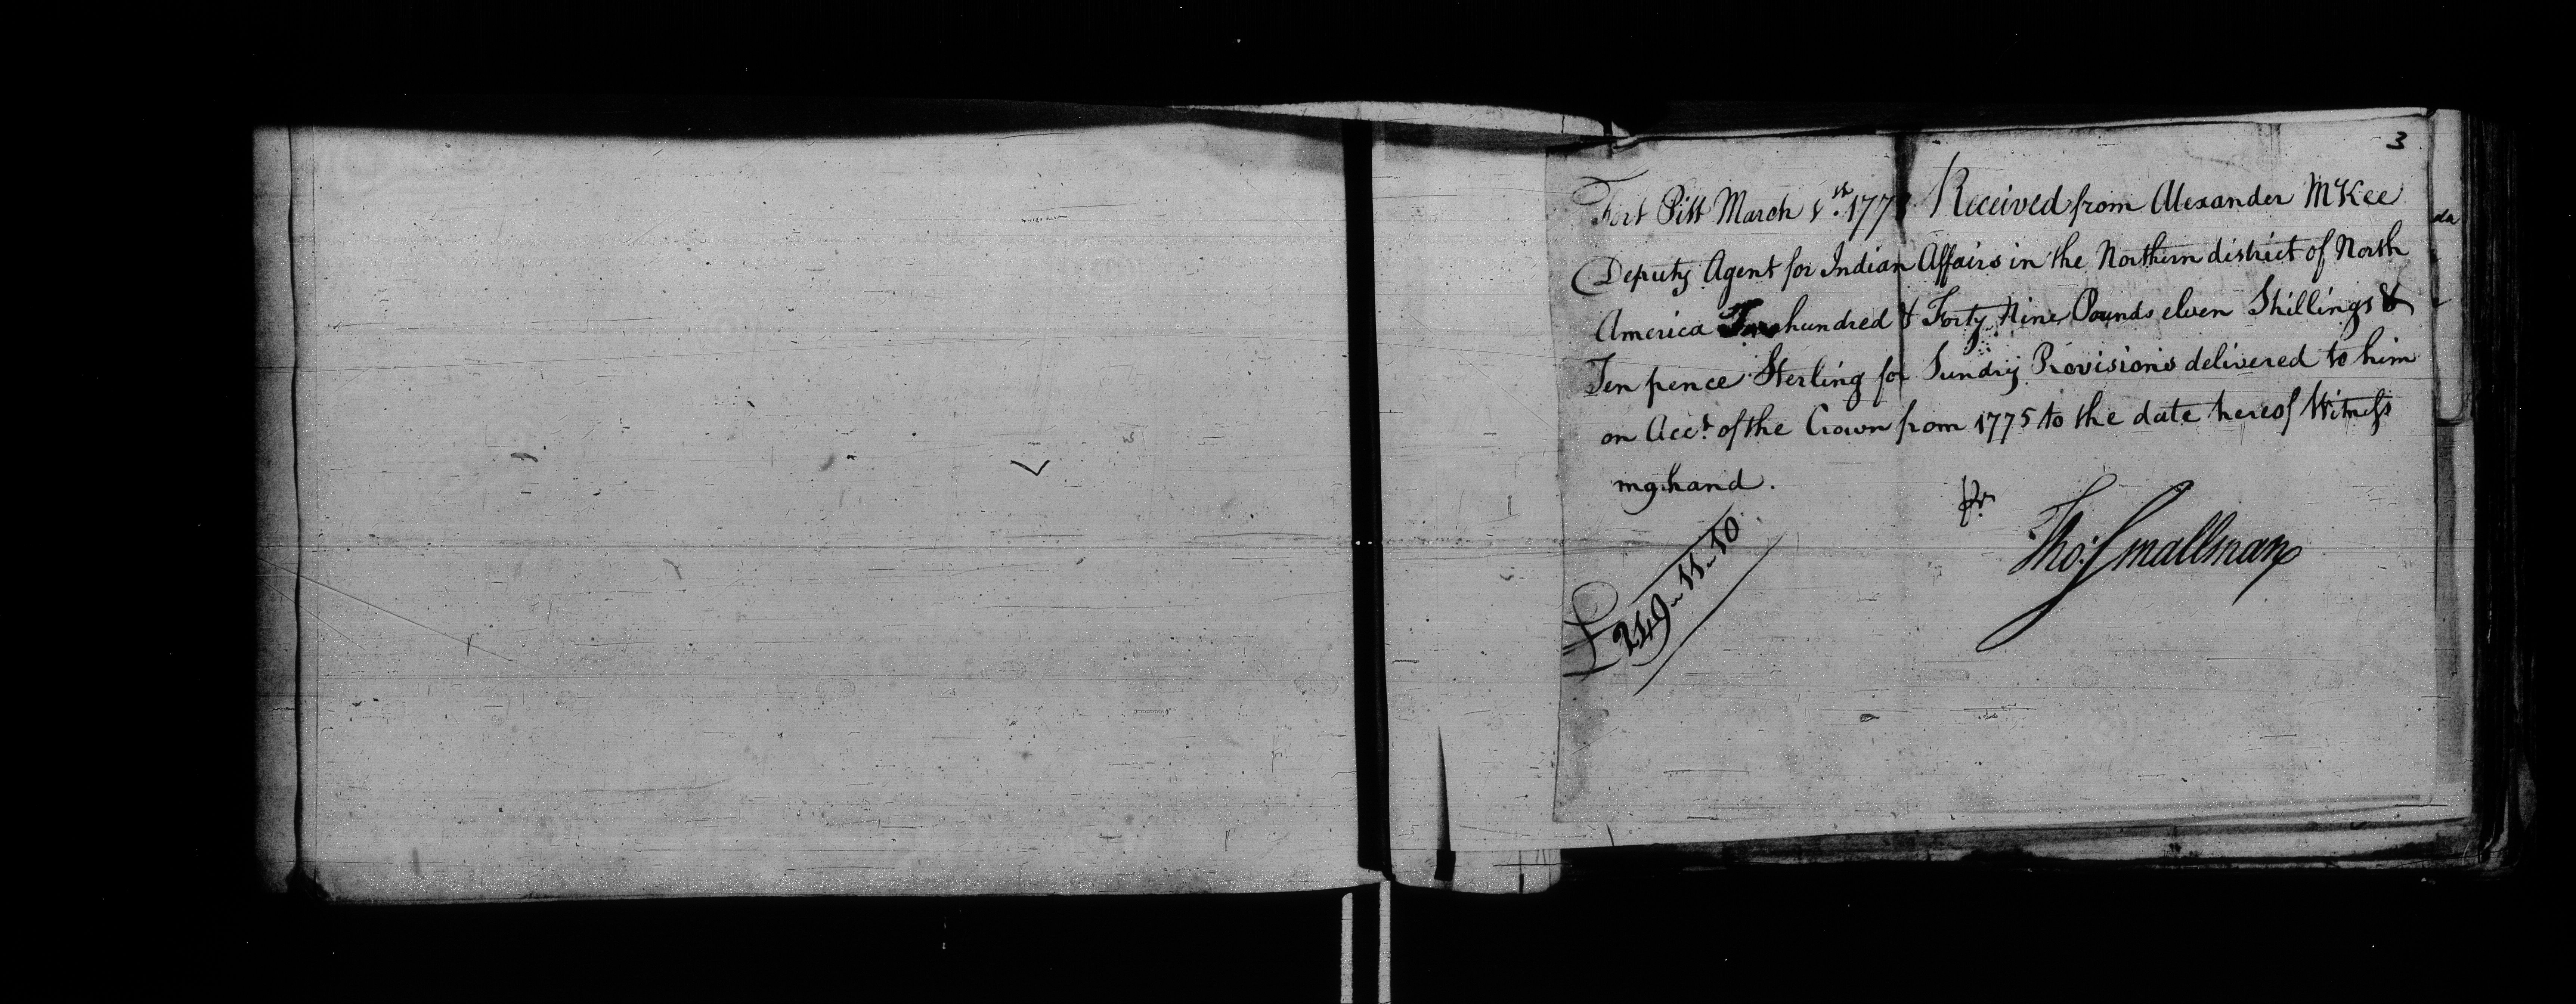 3
Fort Pitt March 1st 177 Received from Alexander McKee
Deputy Agent for Indian Affairs in the Northern district of North
America Two hundred & Forty Nine Pounds elven Shillings &
Ten pence Sterling for Sundry Provisions delivered to him
on Acct. of the Crown from 1775 to the date hereof Witness
my hand.
pr
Tho: Smallman
£249 „ 11 „ 10